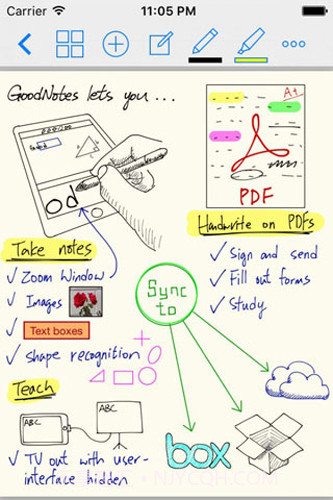 Carrier 11:05 PM
GoodNotes lets you...
A+
PDF
Od
Handwrite on PDFs
✓ Sign and send
✓ Fill out forms
✓ Study
Take notes
✓ Zoom Window
✓ Images
✓ Text boxes
✓ shape recognition
Sync
to
Teach
ABC
ABC
✓ TV out with user-
interface hidden
box